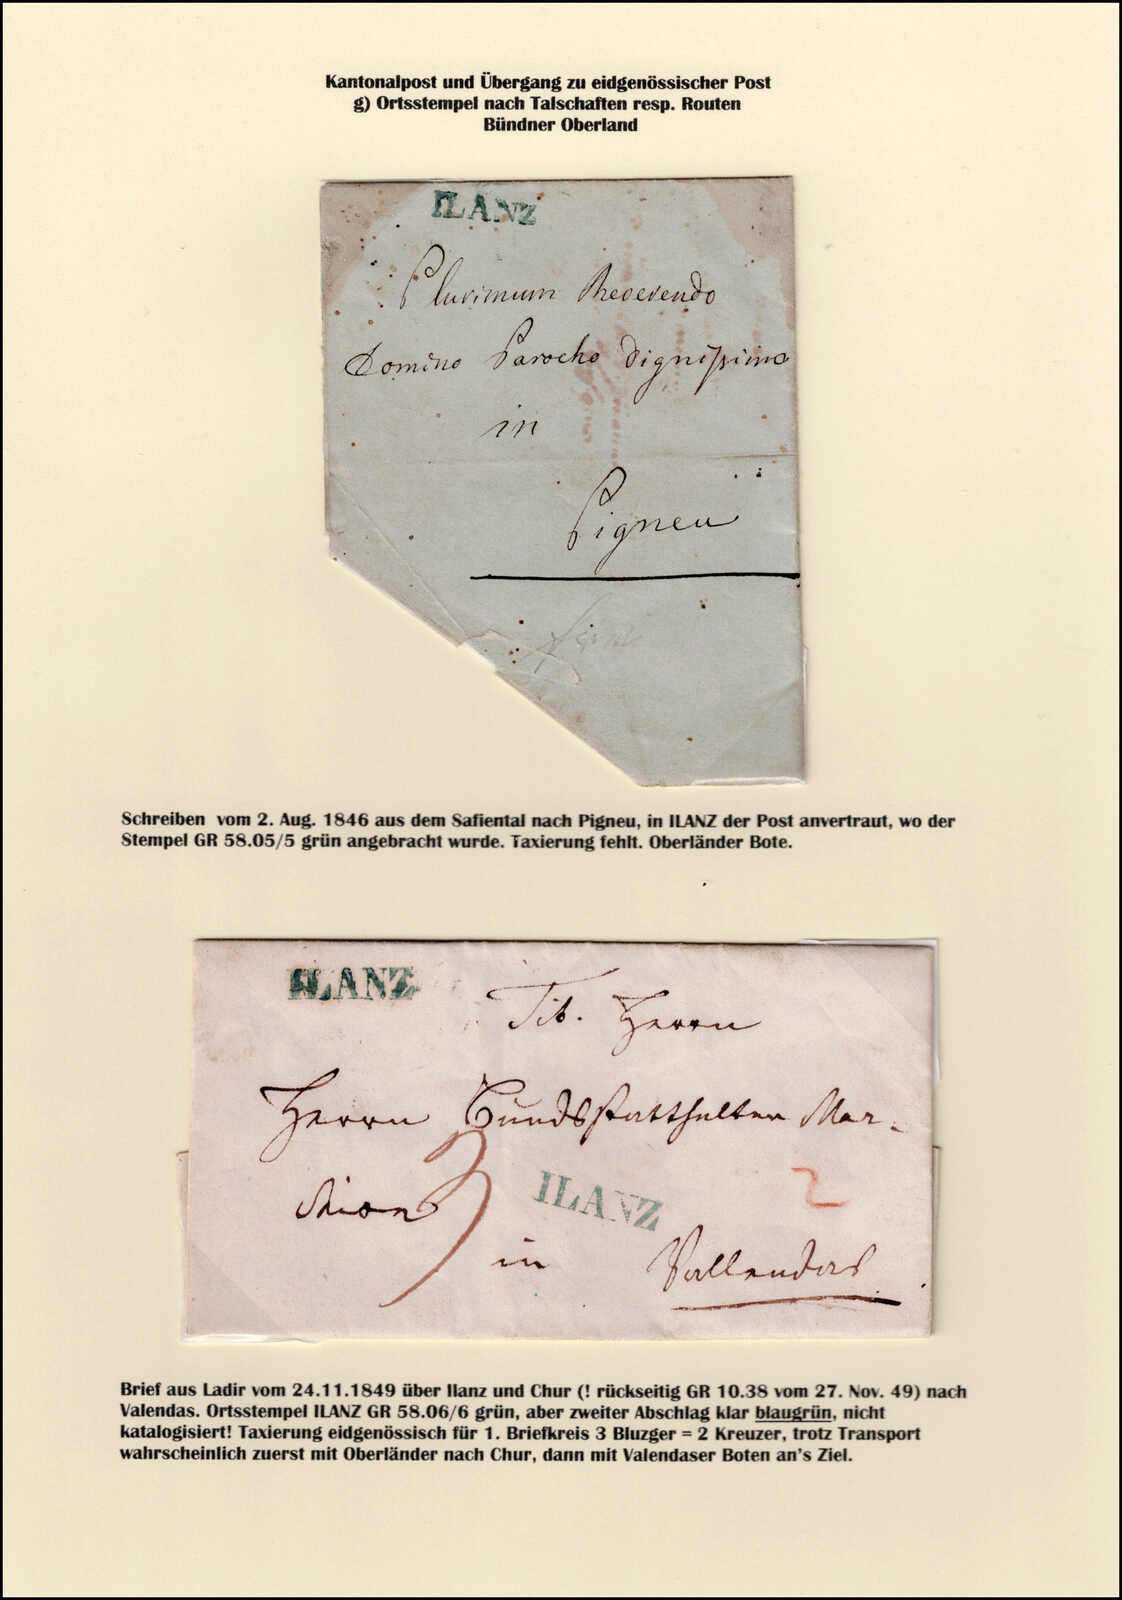 Kantonalpost und Übergang zu eidgenössischer Post
g) Ortsstempel nach Talschaften resp. Routen
Bündner Oberland
ILANZ
Plurimum Reverendo
Domino Parocho Dignissimo
in
Pigneu
Schreiben vom 2. Aug. 1846 aus dem Safiental nach Pigneu, in ILANZ der Post anvertraut, wo der
Stempel GR 58.05/5 grün angebracht wurde. Taxierung fehlt. Oberländer Bote.
ILANZ
Tit. Herrn
Herrn Bundsstatthalter Mar-
chion
3
ILANZ
2
in Vallendas
Brief aus Ladir vom 24.11.1849 über Ilanz und Chur (! rückseitig GR 10.38 vom 27. Nov. 49) nach
Valendas. Ortsstempel ILANZ GR 58.06/6 grün, aber zweiter Abschlag klar blaugrün, nicht
katalogisiert! Taxierung eidgenössisch für 1. Briefkreis 3 Bluzger = 2 Kreuzer, trotz Transport
wahrscheinlich zuerst mit Oberländer nach Chur, dann mit Valendaser Boten an's Ziel.